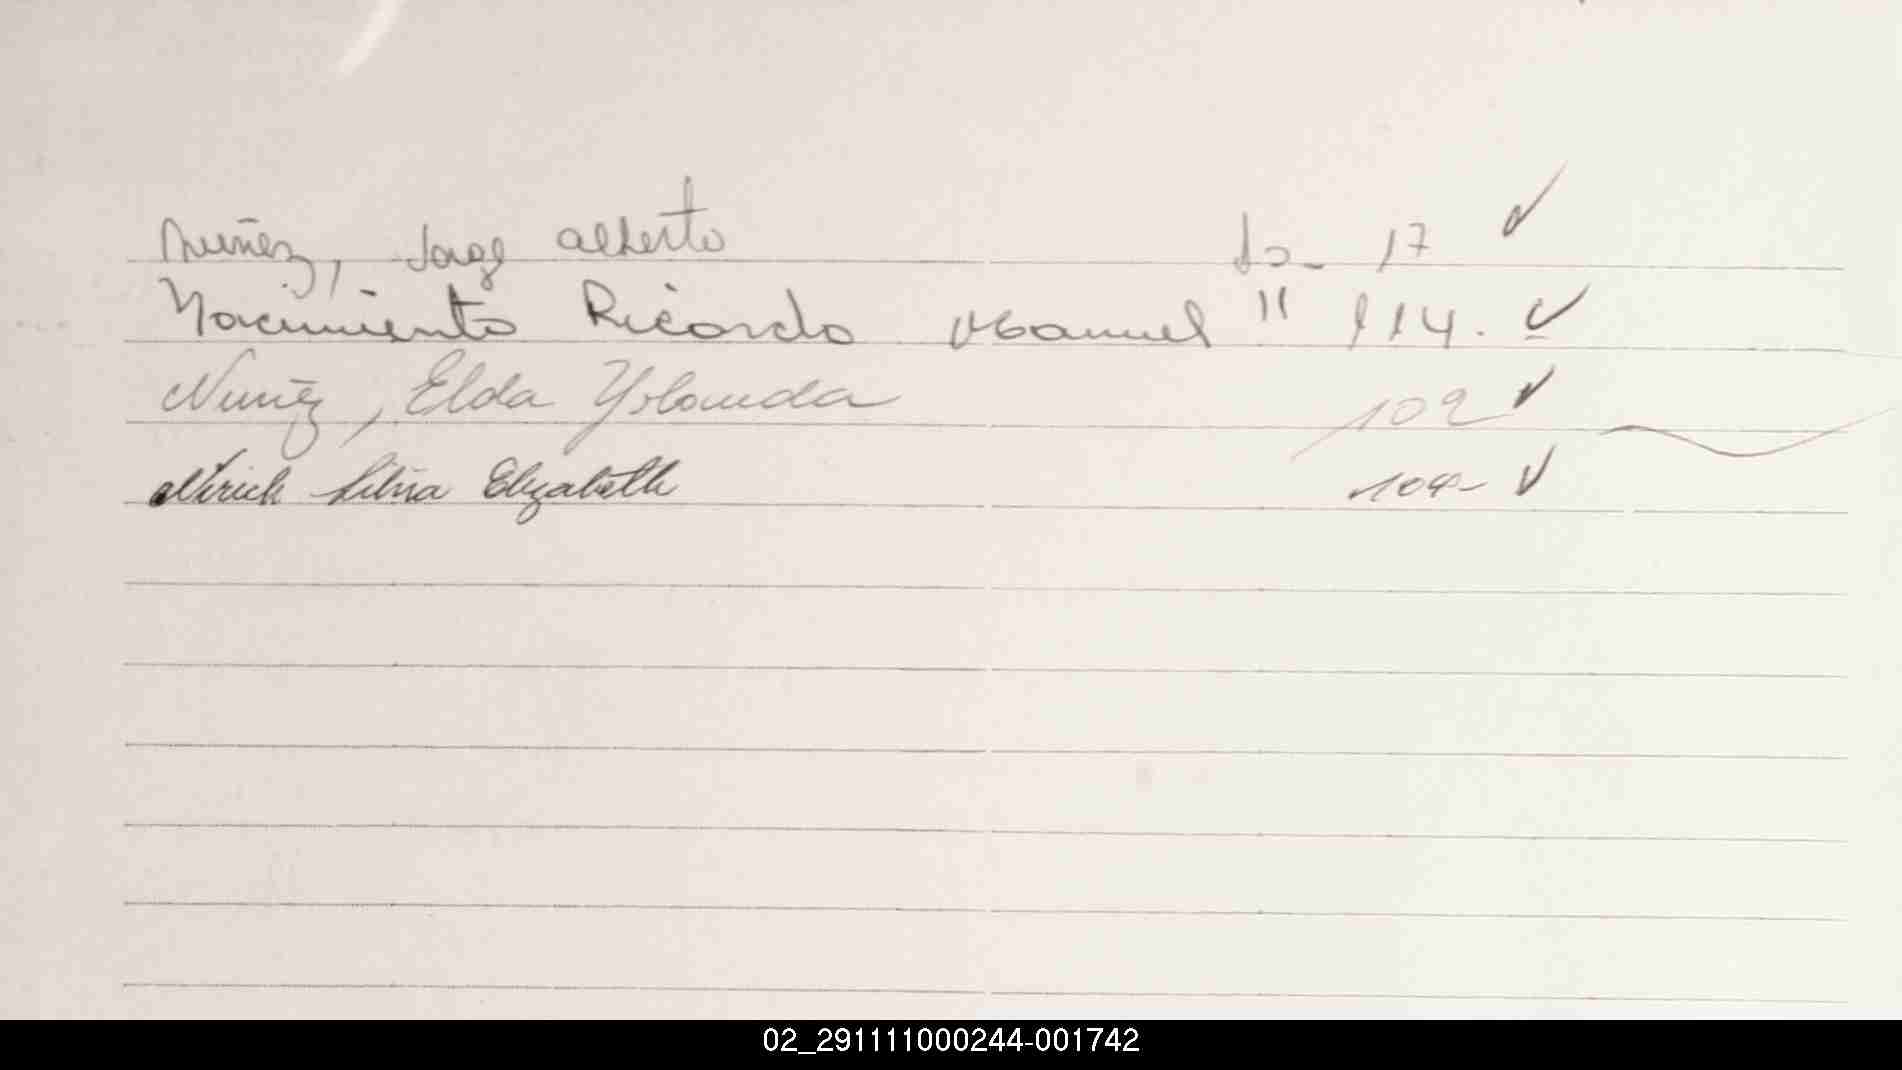 Nuñez, Jorge Alberto fo- 17 ✓
Nacimiento Ricardo Manuel " 114. ✓
Nuñez, Elda Yolanda 102 ✓
Silvia Elizabeth 104- ✓
02_291111000244-001742